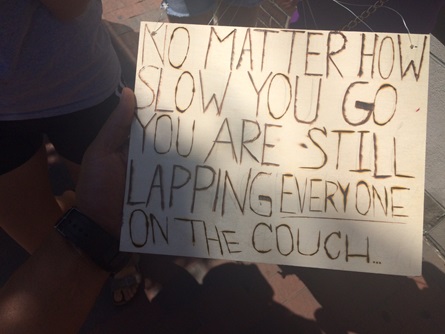 NO MATTER HOW
SLOW YOU GO
YOU ARE STILL
LAPPING EVERYONE
ON THE COUCH...